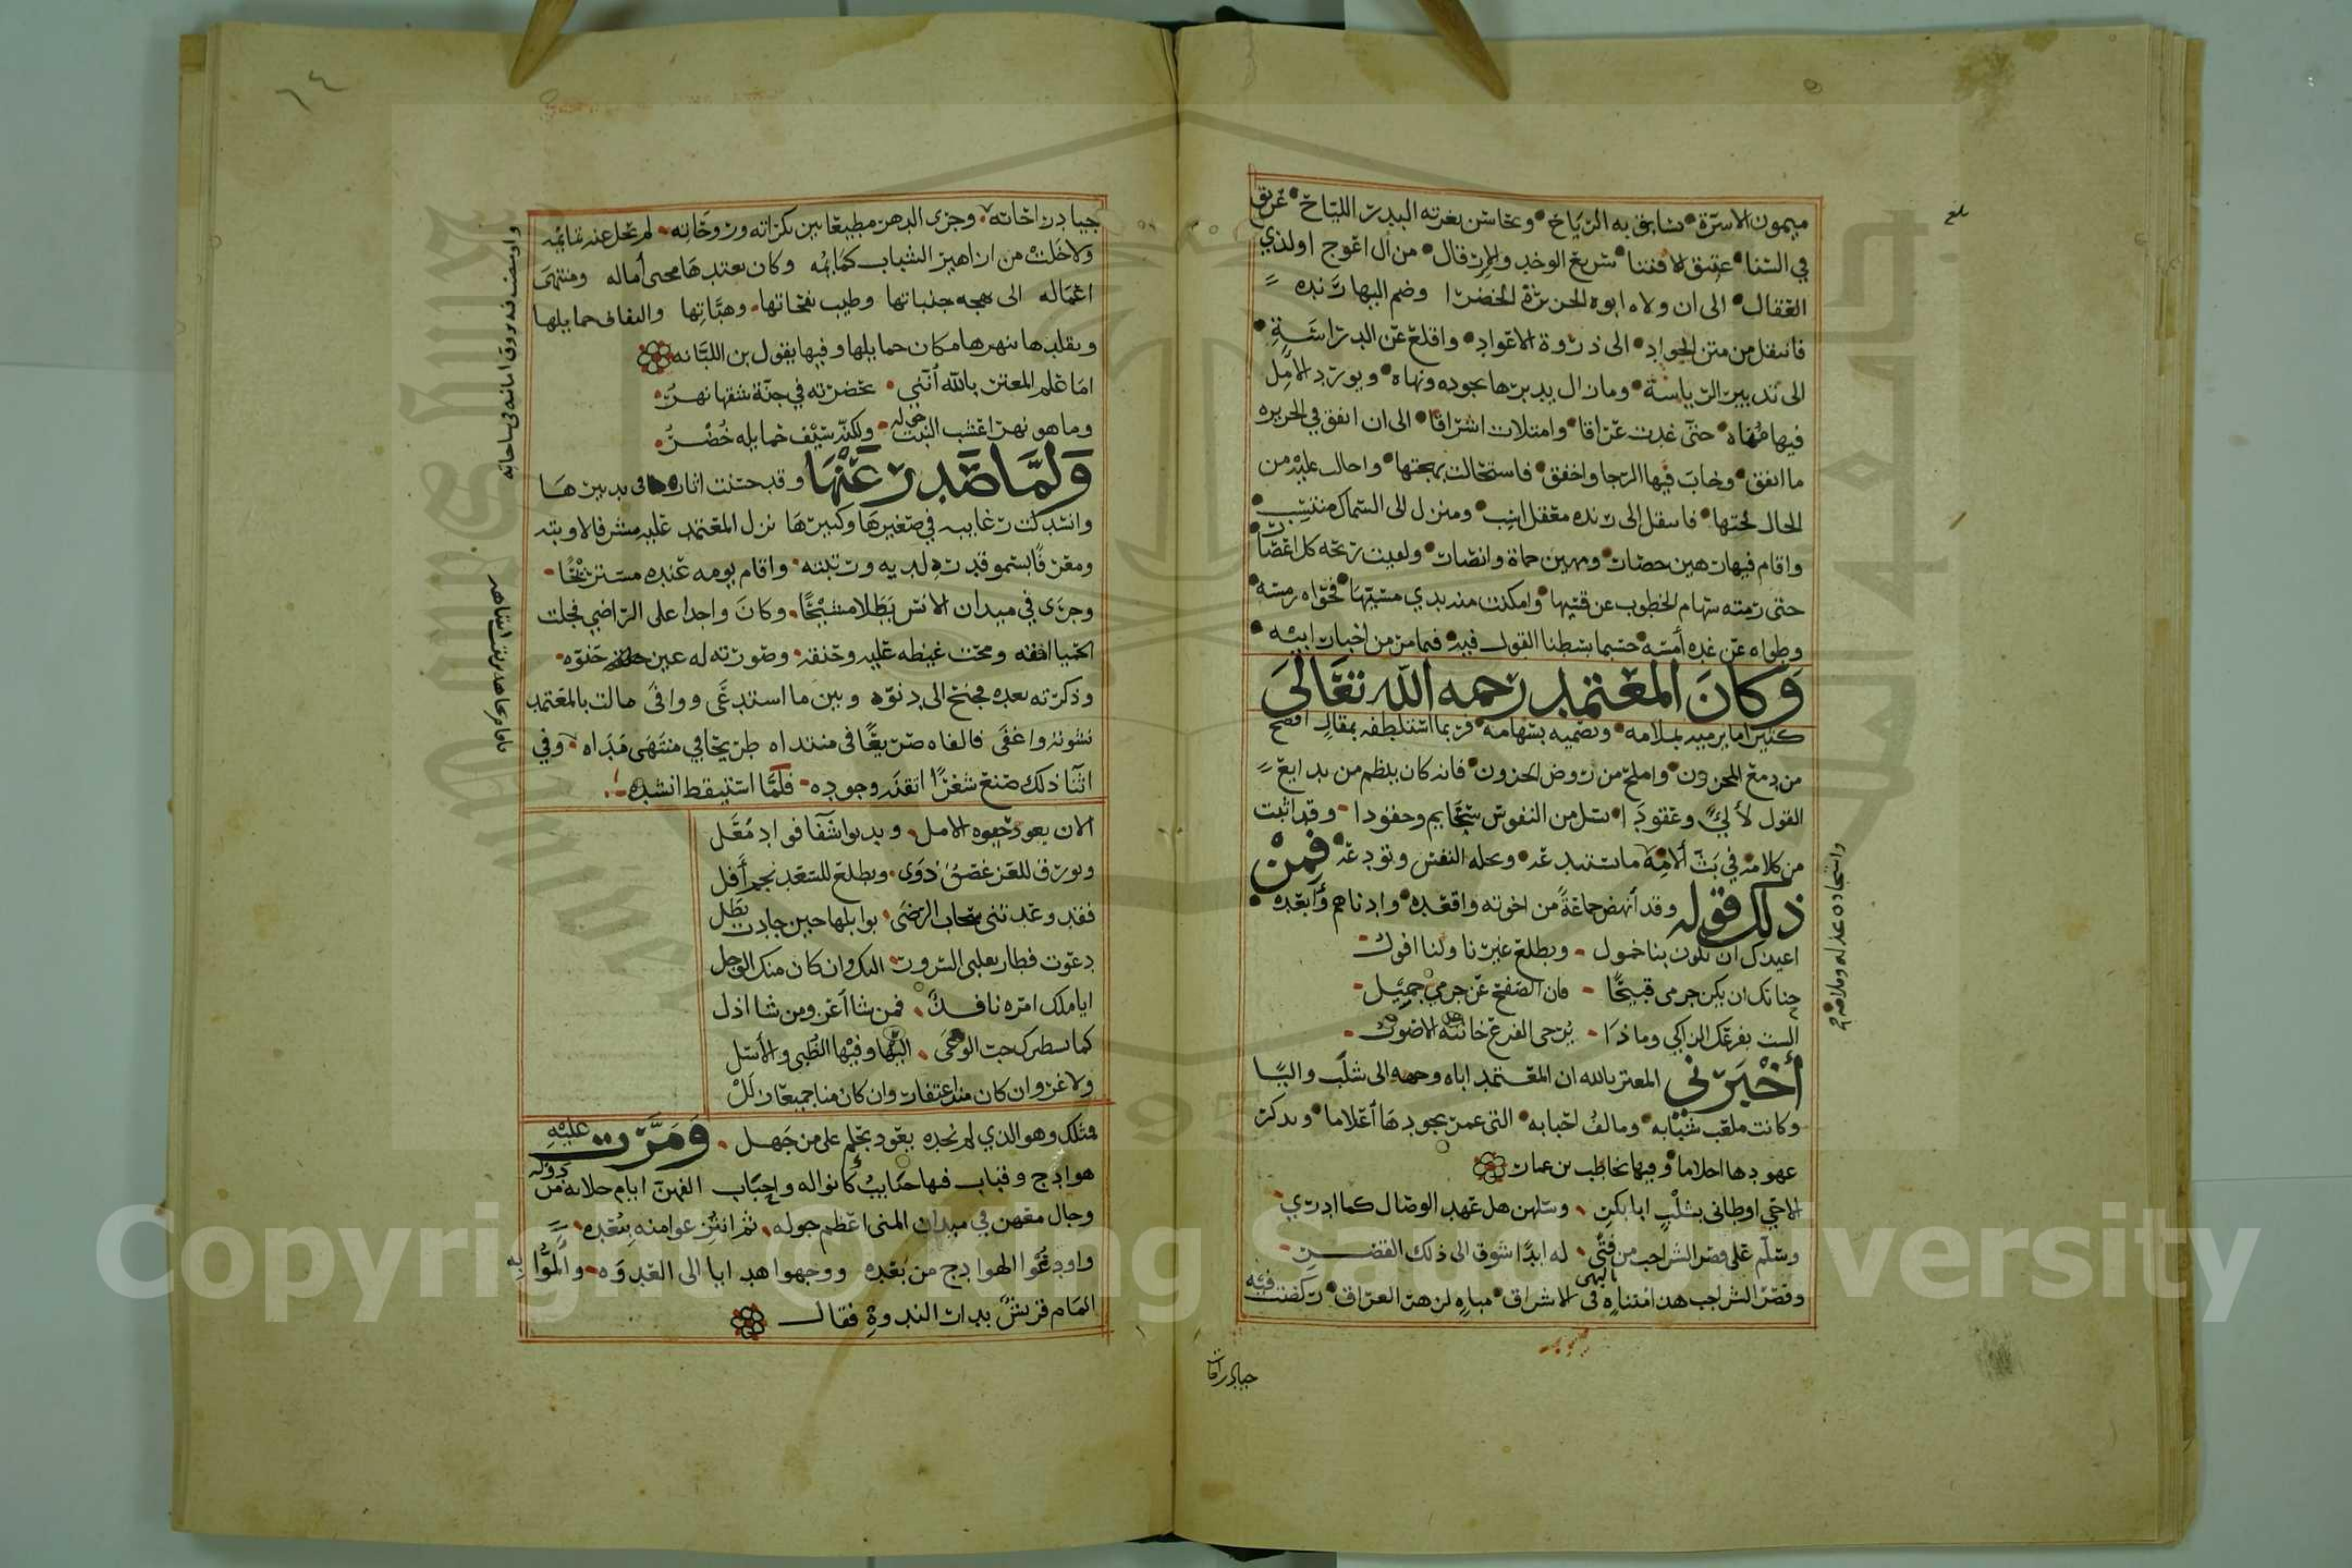 ميمون الاسرة • تسابق به الرياح • وتحاسن بغرته البدر اللياح • عريق
في السنا • عتيق الاقتنا • سريع الوخد والارقال • من آل اعوج اولذي
العقال • الى ان ولاه ابوه الجزيرة الخضرا وضم اليها رنده
فانتقل من متن الجواد • الى ذروة الاعواد • واقلع عن الدراسة •
الى تدبير الرياسة • ومازال يدبرها بجوده ونهاه • ويورد الامل
فيها مناه • حتى غدت عراقا • وامتلات اشراقا • الى ان اتفق في الجزيره
ما اتفق • وخاب فيها الرجا واخفق • فاستحالت بهجتها • واحالت عليه من
الحال لجتها • فانتقل الى رنده معقل اشب • ومنزل الى السماك منتسب •
واقام فيها رهين حصار • ومهين حماة وانصار • ولقيت ريحه كل اعصار •
حتى رمته سهام الخطوب عن قسيها • وامكنت منه يدي مسيها • فحواه رمسه •
وطواه عن غده أمسه • حسبما بسطنا القول فيه • فيما مر من اخبار ابيه •
وَكانَ المعتمد رحمه الله تعَالى
كثيرا ما يرميه بملامه • ويصميه بسهامه • فربما استلطفه بمقال افصح
من دمع المحزون • واملح من روض الحزون • فانه كان ينظم من بدايع
القول لآلئ وعقودا • تسل من النفوس سخايم وحقودا - وقد اثبت
من كلامه في بث آلامه ما تستبدعه • وتحله النفس وتودعه • فمِنْ
ذلك قوله وقد أنهض جماعةً من اخوته واقعده • وادناهم وأبعده •
اعيذك ان يكون بنا خمول - ويطلع غيرنا ولنا افول -
حنانك ان يكن جرمى قبيحًا - فان الصفح عن جرمي جميل -
الست بفرعك الزاكي وماذا - يرجى الفرع خانته الاصول -
أخْبَرني المعتز بالله ان المعتمد اباه وجهه الى شلب واليا
وكانت ملعب شبابه • ومالف احبابه • التى عمر بجودها أعلاما • وتذكر
عهودها احلاما • وفيها يخاطب بن عمار
الا حي اوطاني بشلب ابا بكر ، وسلهن هل عهد الوصال كما ادري -
وسلم على قصر الشراجب من فتى • له ابدًا شوق الى ذلك القصر -
وقصر الشراجب هذا متناه فى البهى والاشراق • مباه لزهر العراق • ركضت فيه
جياد راحاته
واستجاده عذله وملامه
بلغ
٦٤
جياد راحاته • وجرى الدهر مطيعًا بين بكراته وروحاته • لم تحل عنه تمايمه
ولا خلت من ازاهير الشباب كمايمه وكان يعتدها محيى آماله ومنتهى
اعماله الى بهجه جنباتها وطيب نفحاتها • وهبّاتِها والتفاف خمايلها
وتقلدها بنهرها مكان حمايلها وفيها يقول بن اللبّانه
اما علم المعتز بالله أنّني • بحضرته في جنّة شقها نهر •
وما هو نهر اعشب النبت حوله • ولكنه سيف حمايله خُضْرُ •
وَلمّا صَدر عَنها وقد حسنت آثاره فى تدبيرها
وانسدلت رغايبه في صغيرها وكبيرها نزل المعتمد عليه مشرفا لاوبته
ومعرفًا بسمو قدره لديه ورتبته • واقام يومه عنده مستريحًا -
وجرَى في ميدان الانس بَطَلا مشيحًا • وكانَ واجدا على الراضي فجلت
الحميا افقه ومحت غيظه عليه وحنقه • وصورته له عين حنوه •
وذكرته بعده فجنح الى دنوه وبين ما استدعَى ووافى مالت بالمعتمد
نشوته واغفَى فالفاه صريعًا فى منتداه طريحا في منتهَى مَدَاه • وفي
اثنا ذلك صنع شعرًا اتقنه وجوده - فلمّا استيقظ انشده -
الان يعود حيوه الامل • ويدنوا شفا فواد مُعَل
ويورق للعز غصن ذوَى • ويطلع للسعد نجم أفل
فقد وعدتني سحاب الرضَى • بوابلها حين جادت بطل
دعوت فطار بقلبى السرور • اليك وان كان منك الوجل
ايا ملك امره نافذ • فمن شا أعز ومن شا اذل
كما يستطيرك حب الوغَى • اليها وفيها الظبى والأسل
ولا غرو ان كان منك اغتفار وان كان منا جميعا زلَلْ
فمثلك وهو الذي لم نجده يعود بحلم على من جَهل • وَمَرَّت عليْهِ
هوادج وقباب فيها حبايب كانوا له واحباب الفهن ايام خلانه من دوله
وجال معهن في ميدان المنى اعظم جوله • ثم انتزعوا منه بَعْده •
واودعُوا الهوادج من بَعْده ووجهوا هدايا الى العدوَه - وألمُّوا بِه
المام قريش بدار الندوةِ فقال